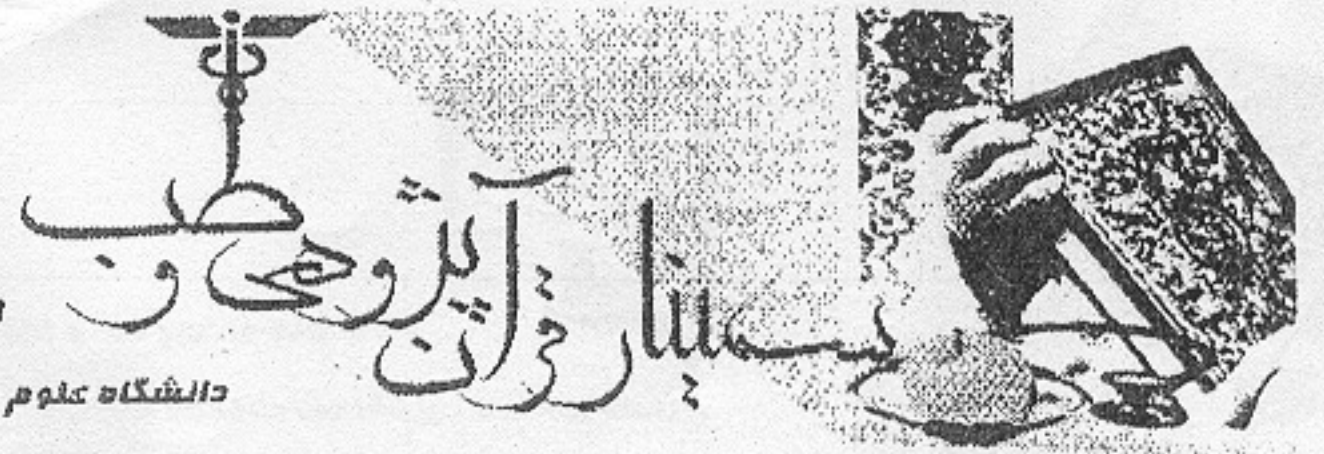 سمینار قرآن پژوهی و طب
دانشگاه علوم